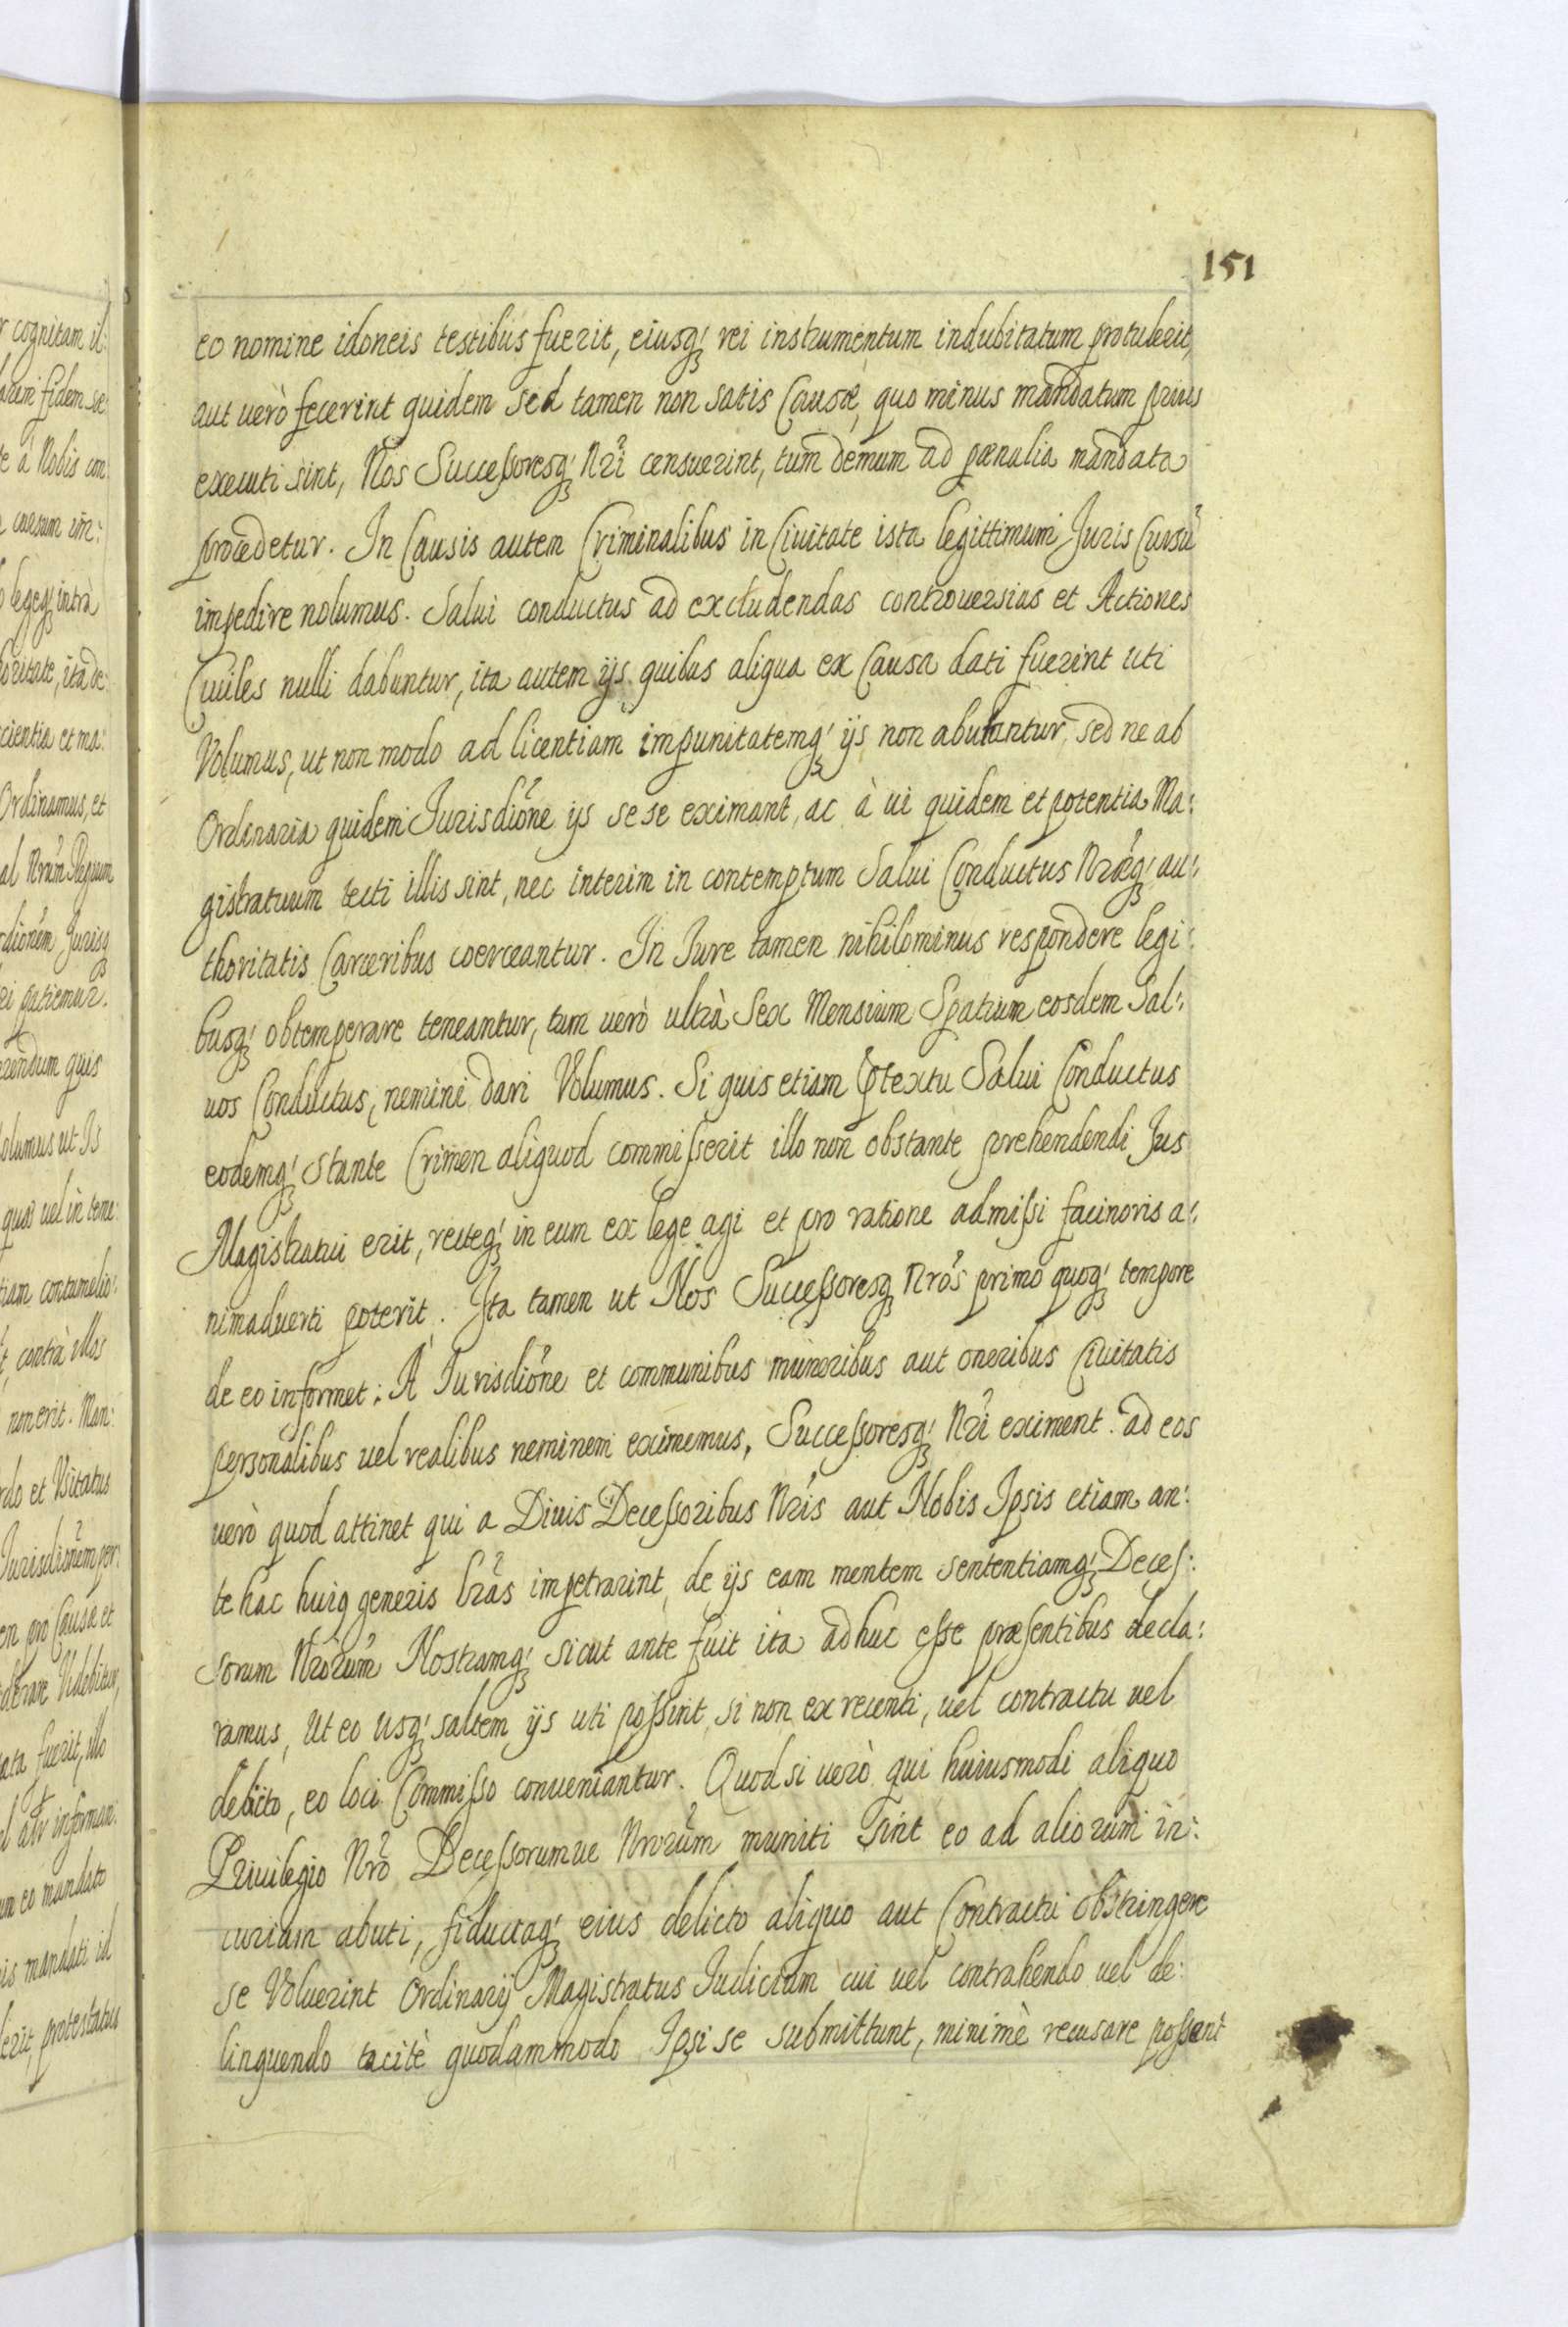 151
eo nomine idoneis testibus fuerit, eiusq; rei instrumentum indubitatum protulerit,
aut uerò fecerint quidem sed tamen non satis Causæ, quo minus mandatum prius
executi sint, Nos Successoresq; Nri censuerint, tum demum ad pœnalia mandata
procedetur. In Causis autem Criminalibus in Ciuitate ista legittimum Juris Cursũ
impedire nolumus. Salui conductus ad excludendas controuersias et Actiones
Ciuiles nulli dabuntur, ita autem ijs quibus aliqua ex Causa dati fuerint uti
Volumus, ut non modo ad licentiam impunitatemq; ijs non abutantur, sed ne ab
Ordinaria quidem Jurisdiõne ijs se se eximant, ac à ui quidem et potentia Ma:
gistratuum tecti illis sint, nec interim in contemptum Salui Conductus Nræq; au:
thoritatis Carceribus coerceantur. In Jure tamen nihilominus respondere legi:
busq; obtemperare teneantur, tum uerò ultrà Sex Mensium Spatium eosdem Sal:
uos Conductus, nemini dari Volumus. Si quis etiam p̃textu Salui Conductus
eodemq; stante Crimen aliquod commisserit illo non obstante prehendendi Jus
Magistratui erit, recteq; in eum ex lege agi et pro ratione admissi facinoris a:
nimaduerti poterit. Ita tamen ut Nos Successoresq; Nros primo quoq; tempore
de eo informet: A Jurisdiõne et communibus muneribus aut oneribus Ciuitatis
personalibus uel realibus neminem eximemus, Successoresq; Nri eximent. ad eos
uerò quod attinet qui a Diuis Decessoribus Nris aut Nobis Ipsis etiam an:
te hac huiq generis lras impetrarint, de ijs eam mentem sententiamq; Deces:
sorum Nrorum Nostramq; sicut ante fuit ita adhuc esse præsentibus decla:
ramus, Ut eo usq; saltem ijs uti possint, si non ex recenti, uel contractu uel
delicto, eo loci Commisso conueniantur. Quod si uerò qui huiusmodi aliquo
Priuilegio Nro Decessorumue Nrorum muniti sint eo ad aliorum in:
curiam abuti, fiduciaq; eius delicto aliquo aut Contractu obstringere
se Voluerint Ordinarij Magistratus Judicium cui uel contrahendo uel de:
linquendo tacitè quodammodo Ipsi se submittunt, minimè recusare possent